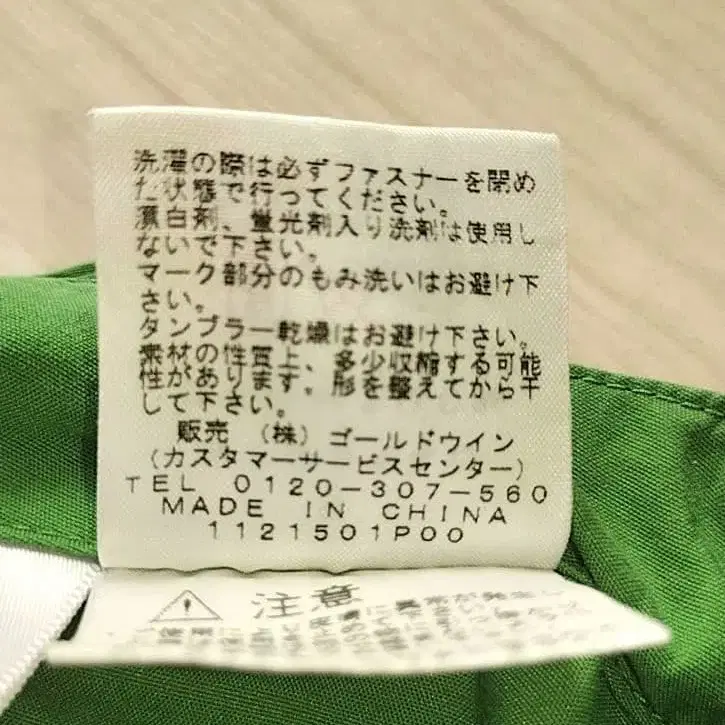 洗濯の際は必ずファスナーを閉め
た状態で行ってください。
漂白剤、蛍光剤入り洗剤は使用し
ないで下さい。
マーク部分のもみ洗いはお避け下
さい。
タンブラー乾燥はお避け下さい。
素材の性質上、多少収縮する可能
性があります。形を整えてから干
して下さい。
販売 (株)ゴールドウイン
(カスタマーサービスセンター)
TEL 0120-307-560
MADE IN CHINA
1121501P00
注意